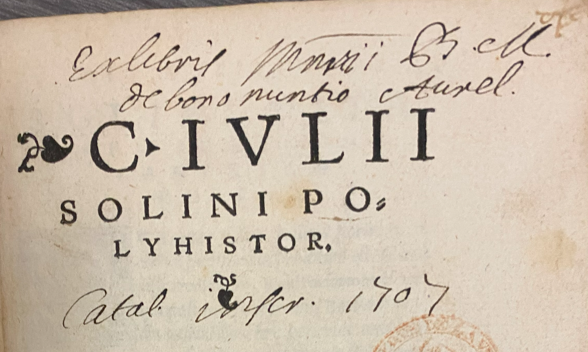 Ex libris Mon̅rii B. M.
de bono nuntio Aurel.
C. IVLII
SOLINI PO=
LYHISTOR.
Catal. inscr. 1707